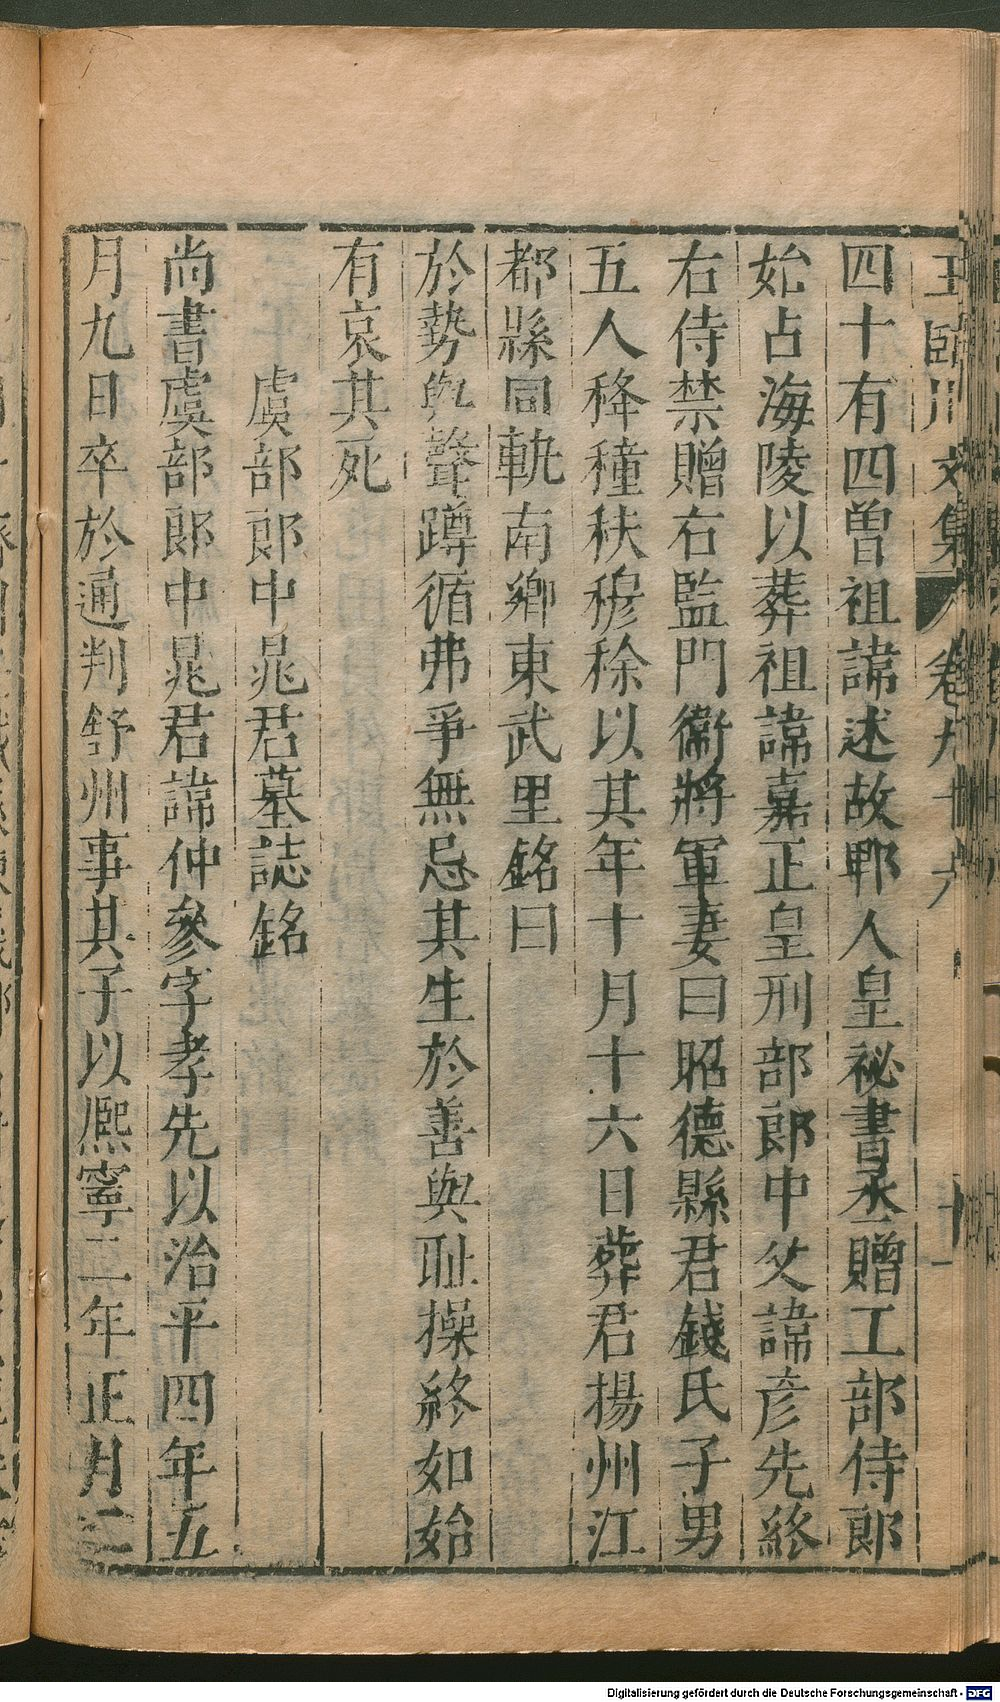 王臨川文集 卷九十六 十一
四十有四曾祖諱述故鄆人皇祕書丞贈工部侍郎
始占海陵以葬祖諱嘉正皇刑部郎中父諱彦先終
右侍禁贈右監門衞將軍妻曰昭德縣君錢氏子男
五人穜秩穆稌以其年十月十六日葬君揚州江
都縣同軌南鄉東武里銘曰
於勢與聲蹲循弗爭無忌其生於善與耻操終如始
有哀其死
虞部郎中晁君墓誌銘
尚書虞部郎中晁君諱仲參字孝先以治平四年五
月九日卒於通判舒州事其子以熈寧二年正月二
Digitalisierung gefördert durch die Deutsche Forschungsgemeinschaft - DFG